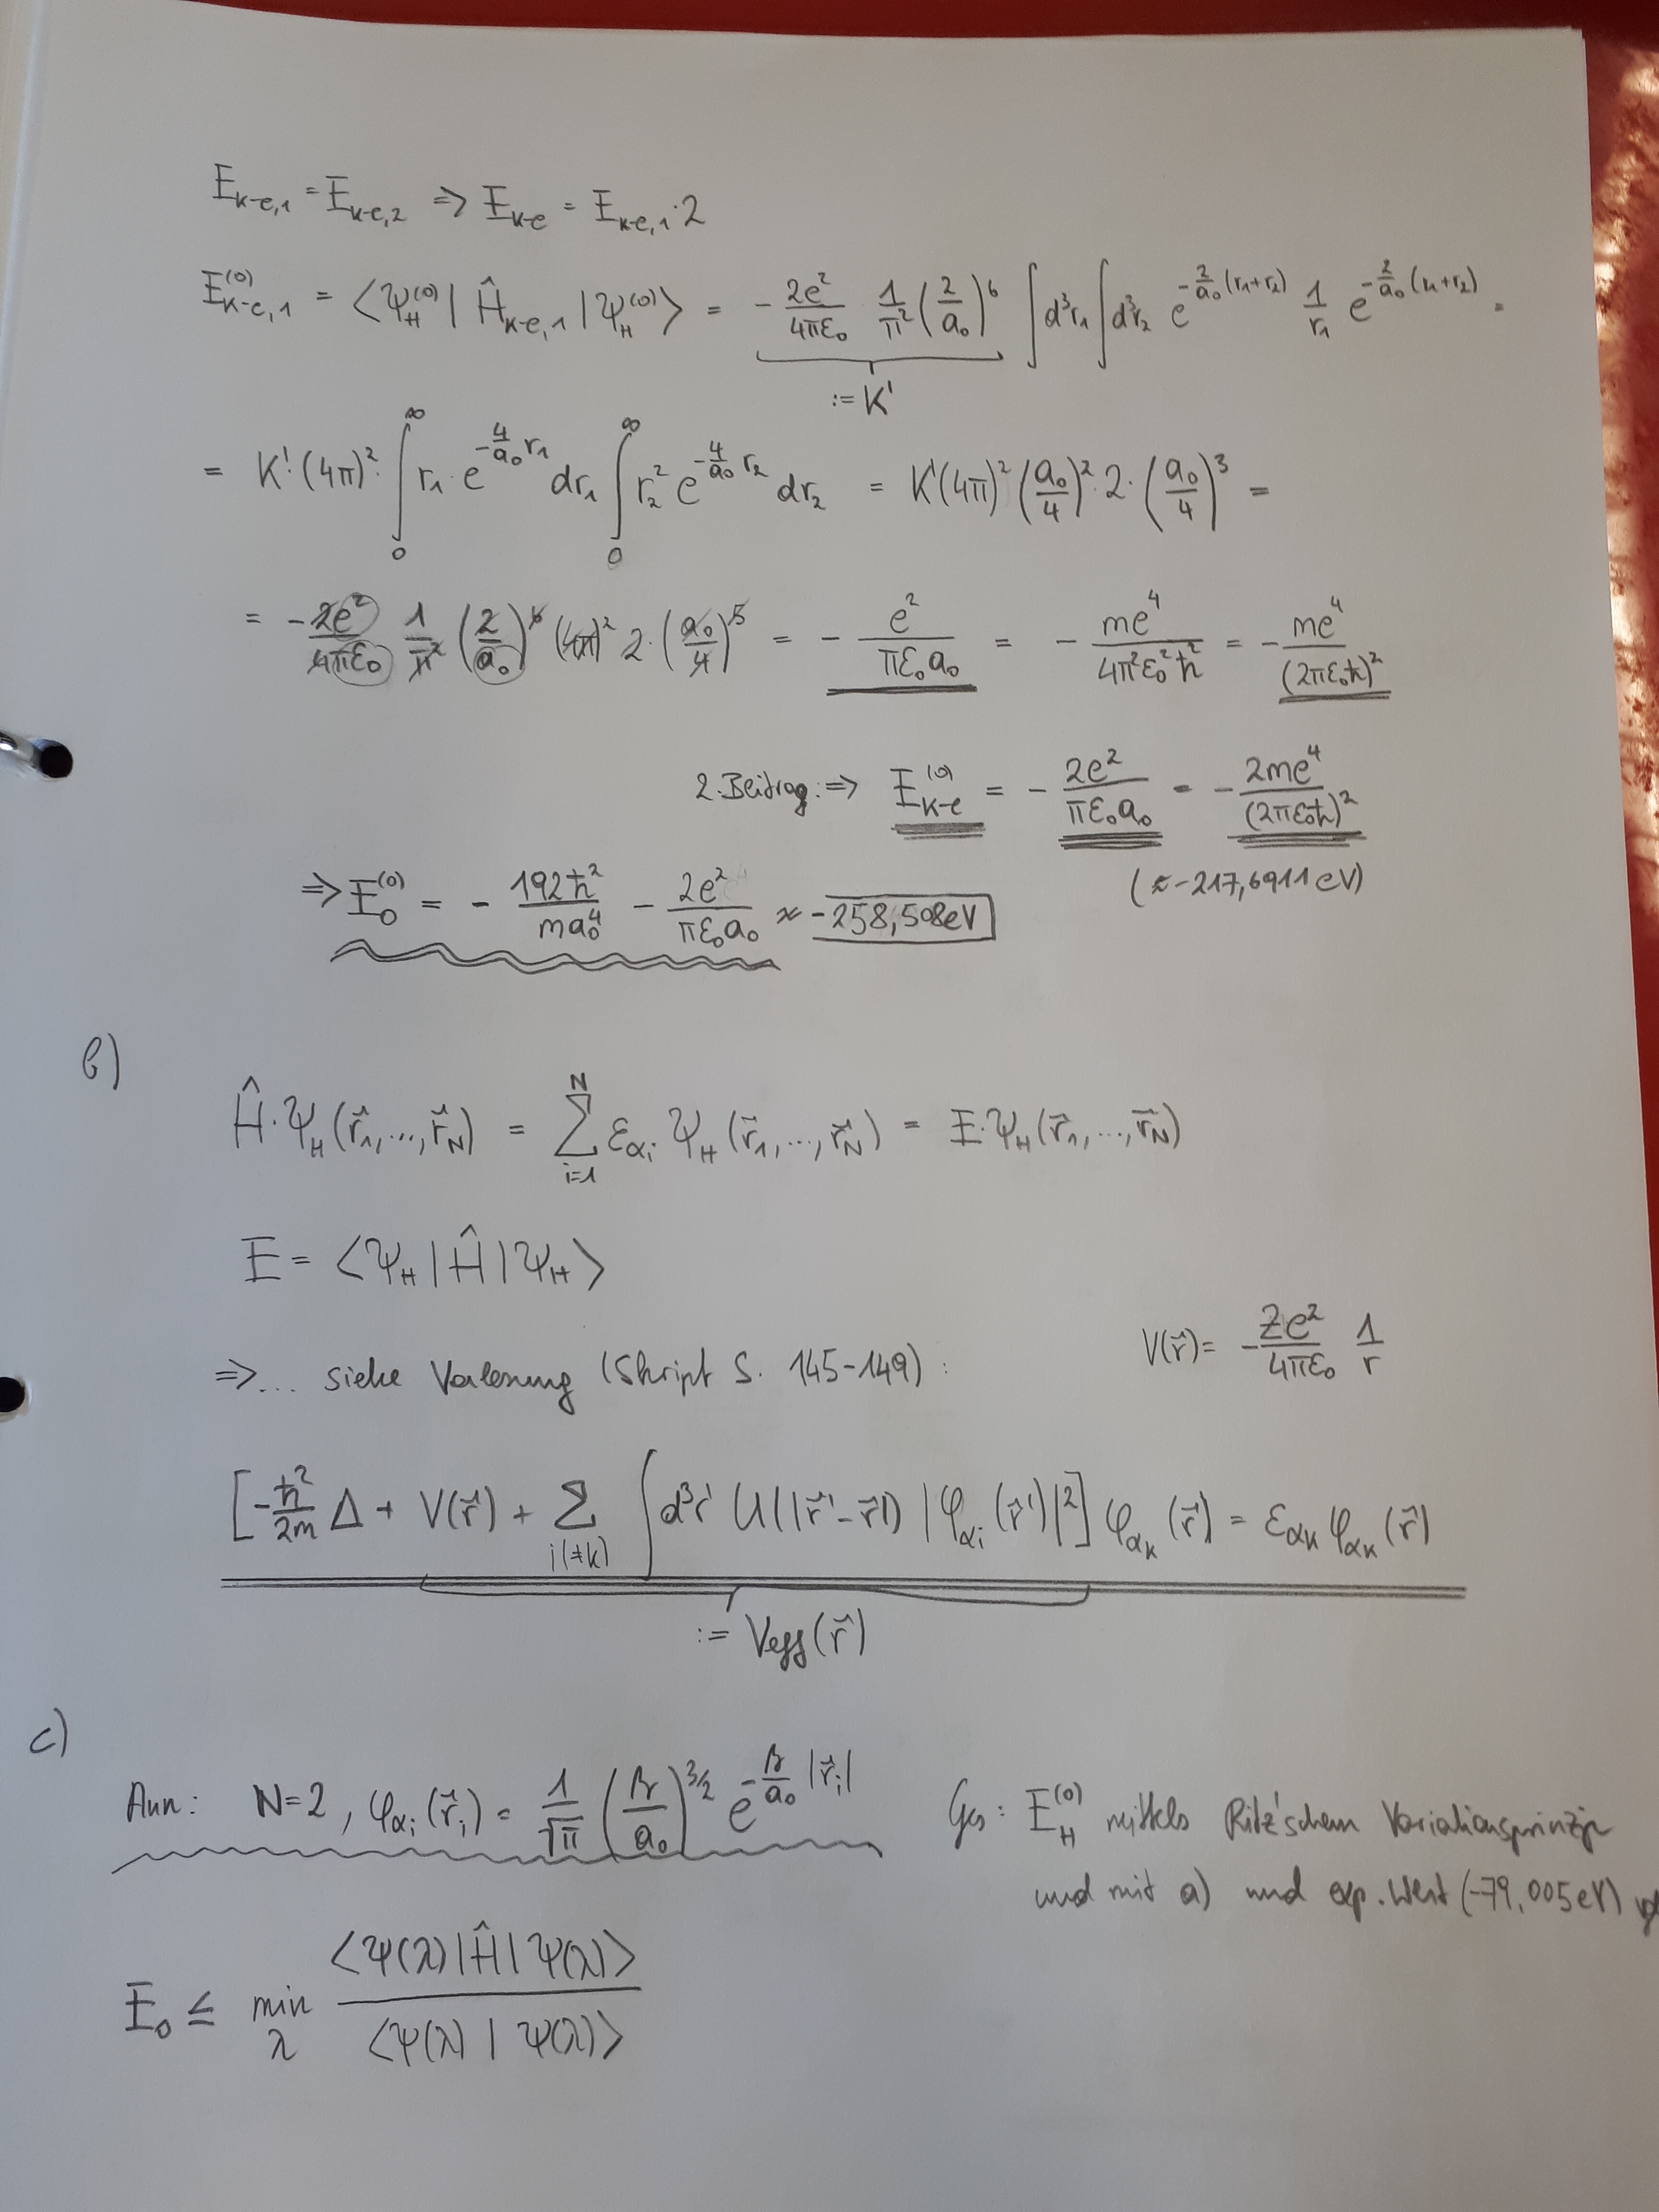 E_{K-e,1} = E_{K-e,2} ⇒ E_{K-e} = E_{K-e,1}·2
E_{K-e,1}^{(0)} = ⟨Ψ_H^{(0)}| Ĥ_{K-e,1} |Ψ_H^{(0)}⟩ = -\frac{2e²}{4πε₀} \frac{1}{π²} (\frac{2}{a₀})^6 ∫d³r₁∫d³r₂ e^{-\frac{2}{a₀}(r₁+r₂)} \frac{1}{r₁} e^{-\frac{2}{a₀}(r₁+r₂)} =
:= K'
= K'·(4π)²·∫_0^∞ r₁·e^{-\frac{4}{a₀}r₁} dr₁ ∫_0^∞ r₂² e^{-\frac{4}{a₀}r₂} dr₂ = K'(4π)² (\frac{a₀}{4})²·2·(\frac{a₀}{4})³ =
= -\frac{2e²}{4πε₀} \frac{1}{π²} (\frac{2}{a₀})^6 (4π)² 2·(\frac{a₀}{4})^5 = -\frac{e²}{πε₀a₀} = -\frac{me⁴}{4π²ε₀²ħ²} = -\frac{me⁴}{(2πε₀ħ)²}
2. Beitrag: ⇒ E_{K-e}^{(0)} = -\frac{2e²}{πε₀a₀} = -\frac{2me⁴}{(2πε₀ħ)²}
(≈ -217,6911 eV)
⇒ E_0^{(0)} = -\frac{192ħ²}{ma₀⁴} - \frac{2e²}{πε₀a₀} ≈ -258,508eV
b)
Ĥ·Ψ_H(r⃗₁,...,r⃗_N) = Σ_{i=1}^{N} ε_{α_i} Ψ_H(r⃗₁,...,r⃗_N) = E·Ψ_H(r⃗₁,...,r⃗_N)
E = ⟨Ψ_H|Ĥ|Ψ_H⟩
⇒... siehe Vorlesung (Skript S. 145-149): V(r⃗)= -\frac{Ze²}{4πε₀} \frac{1}{r}
[-\frac{ħ²}{2m} Δ + V(r⃗) + Σ_{i(≠k)} ∫d³r' U(|r⃗'-r⃗|) |φ_{α_i}(r⃗')|²] φ_{α_k}(r⃗) = ε_{α_k} φ_{α_k}(r⃗)
:= V_{eff}(r⃗)
c)
Ann: N=2, φ_{α_i}(r⃗_i) = \frac{1}{√π} (\frac{β}{a₀})^{3/2} e^{-\frac{β}{a₀}|r⃗_i|} Ges: E_H^{(0)} mittels Ritz'schem Variationsprinzip
und mit a) und exp. Wert (-79,005eV)
E₀ ≤ min_λ \frac{⟨Ψ(λ)|Ĥ|Ψ(λ)⟩}{⟨Ψ(λ)|Ψ(λ)⟩}